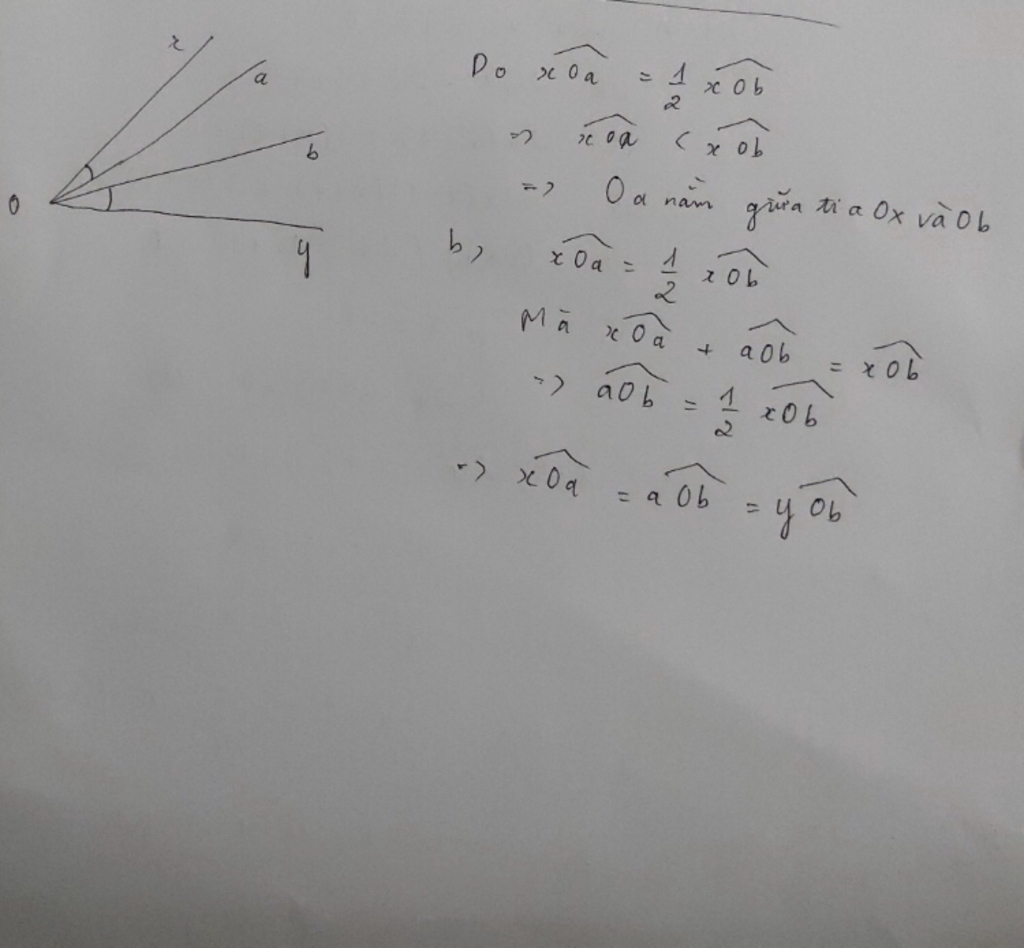 x
a
b
O
y
Do xOa = 1/2 xOb
=> xOa < xOb
=> Oa nằm giữa tia Ox và Ob
b, xOa = 1/2 xOb
Mà xOa + aOb = xOb
=> aOb = 1/2 xOb
=> xOa = aOb = yOb